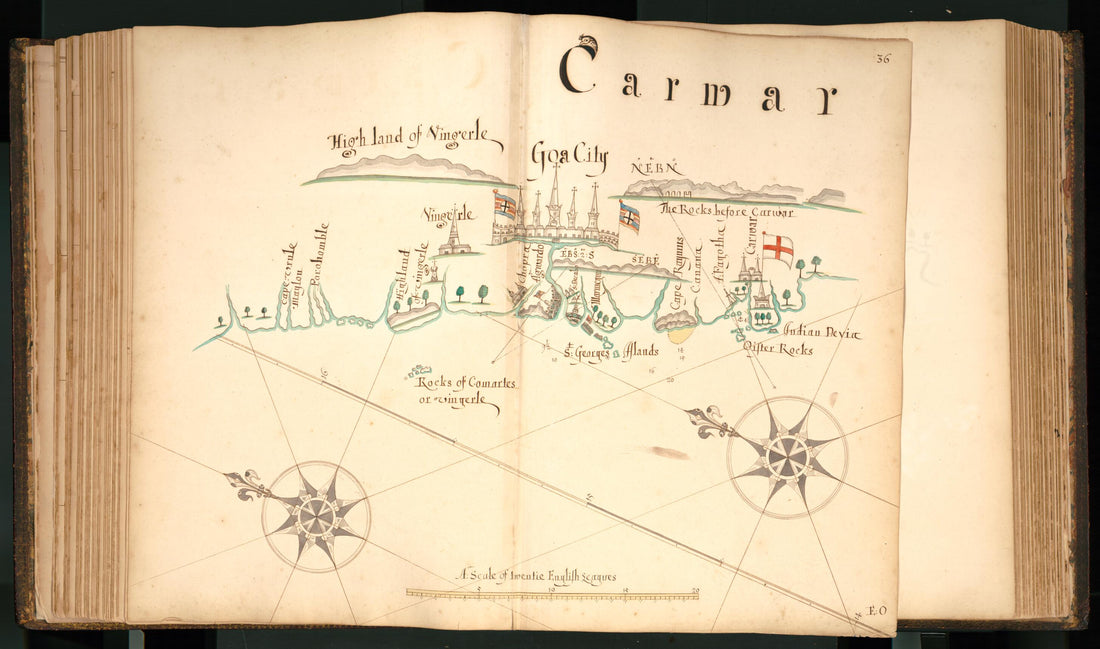 36
Carwar
High land of Vingerle
Goa City
N.E.B.N
The Rocks before Carwar
Vingerle
Cape
Maylon
Highland
of Vingerle
Chapra
Agwardo
E.B.S.
S.E.B.E
Cape Ramus
Canana
A Pagotha
Carwar
Indian Devia
Oister Rocks
St. Georges Islands
Rocks of Comartes
or vingerle
16
20
15
A Scale of twentie English Leagues
5
10
15
20
14
E.O